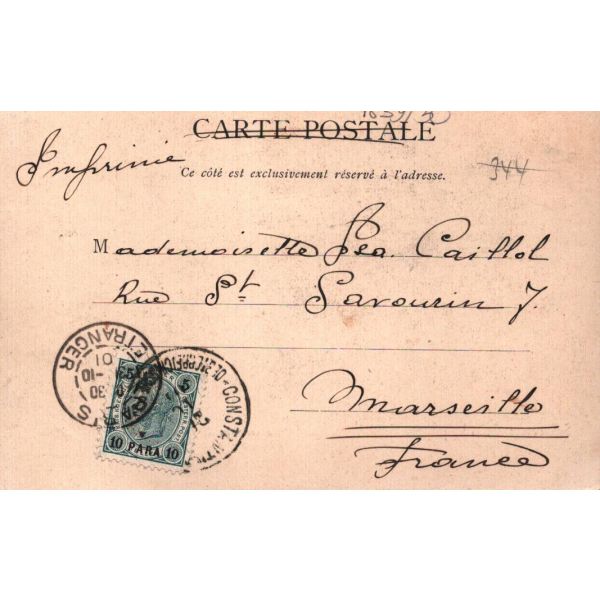 CARTE POSTALE
Imprimé
Ce côté est exclusivement réservé à l'adresse.
344
Mademoiselle Caillol
Rue St Savourin 7.
Marseille
France
ETRANGER
30
10
01
CONSTANTIN
5 5
10 PARA 10